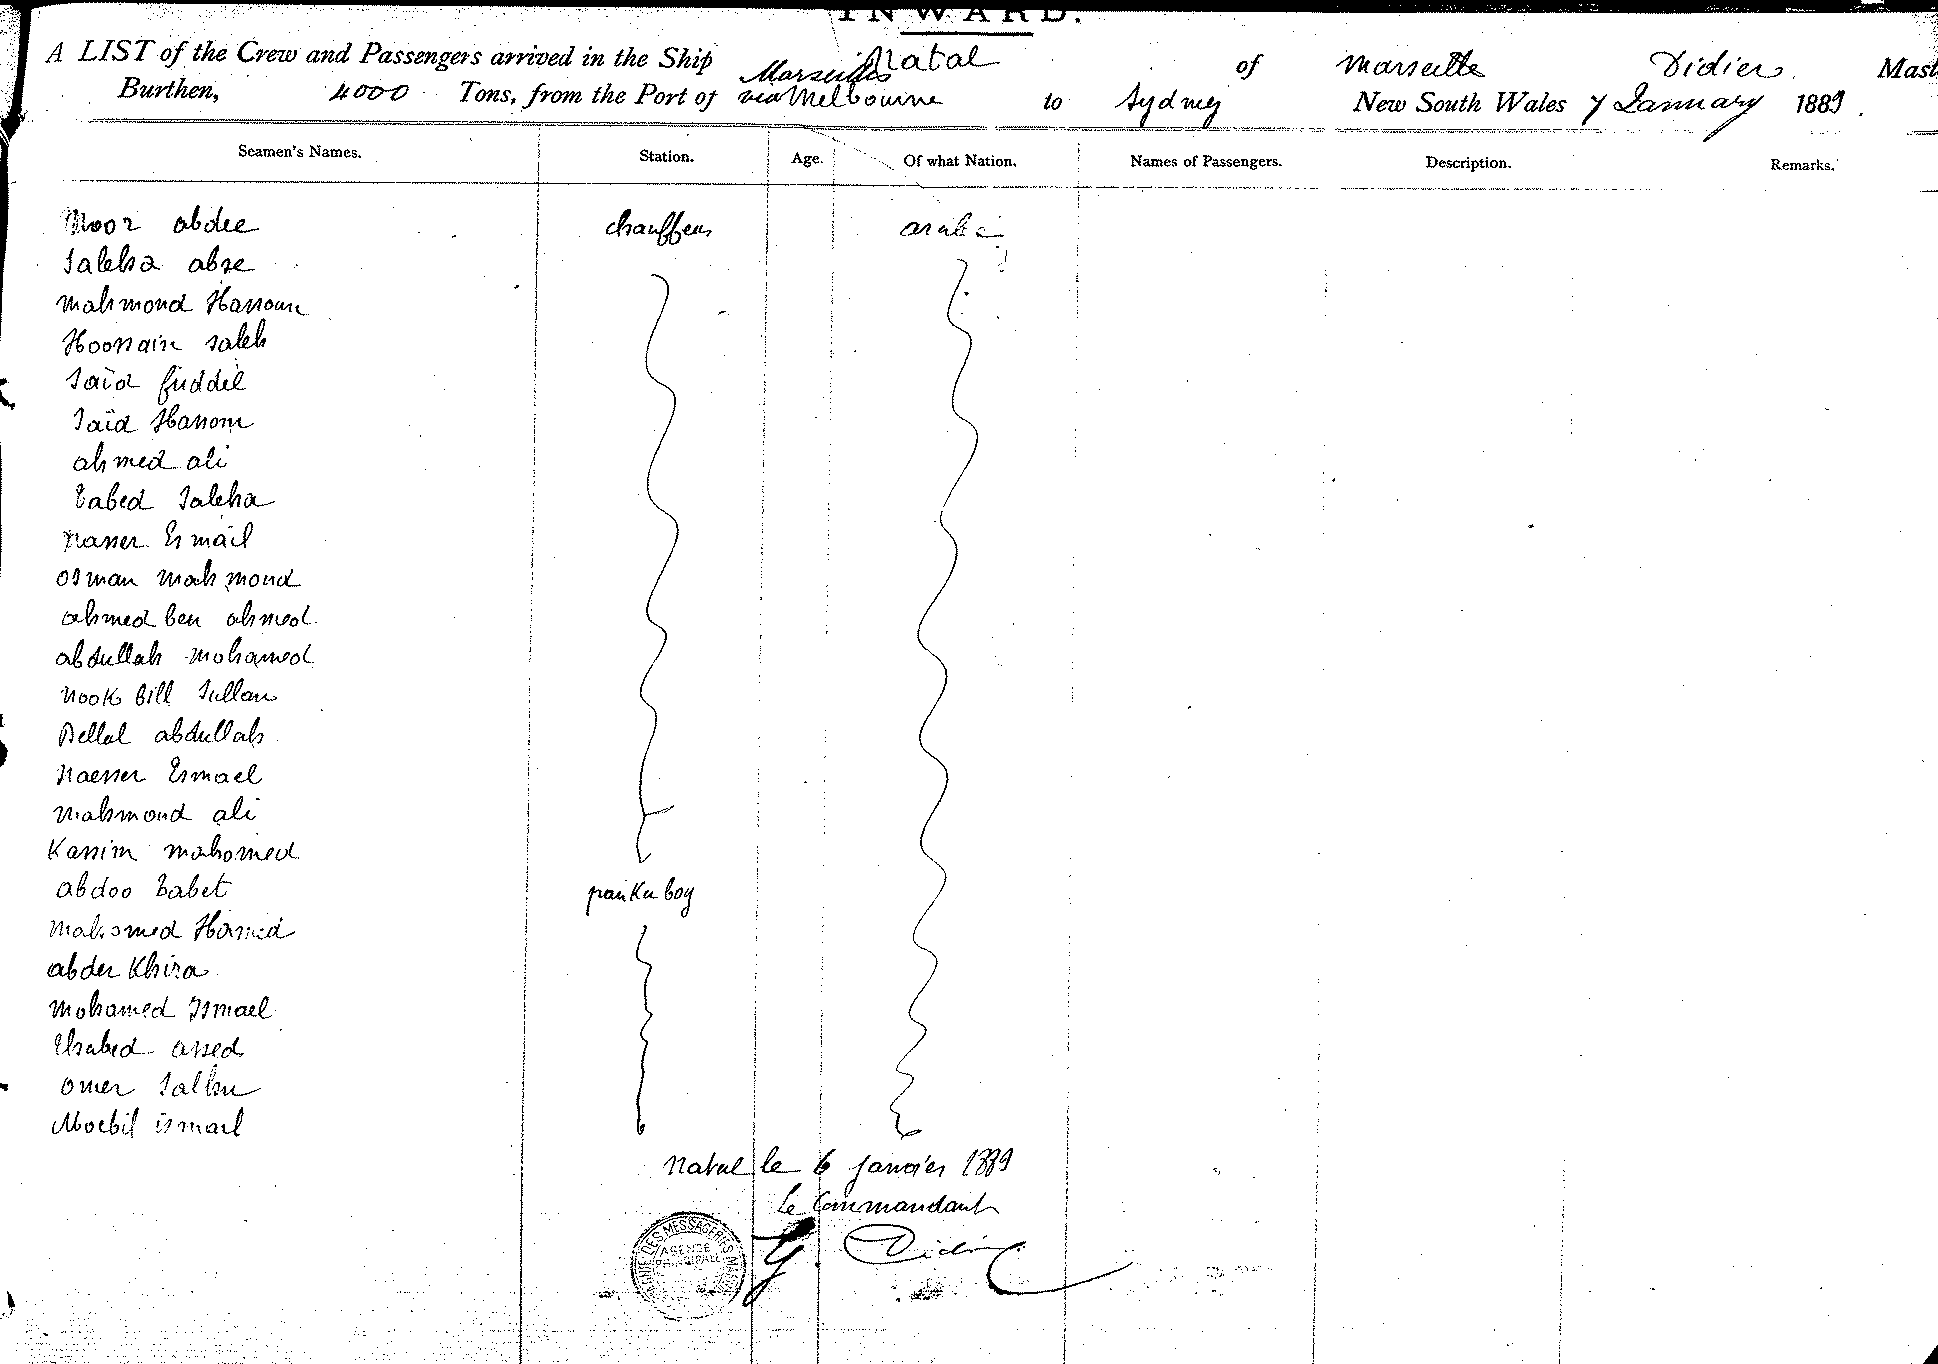 INWARD.
A LIST of the Crew and Passengers arrived in the Ship Natal of Marseille Didier Mast
Burthen, 4000 Tons, from the Port of Marseilles via Melbourne to Sydney New South Wales 7 January 1889.
Seamen's Names. Station. Age. Of what Nation. Names of Passengers. Description. Remarks.
Noor abdee chauffeur arabe
Saleha abse
mahmoud Hassoun
Hoossain saleh
Saïd fuddil
Saïd Hassom
ahmed ali
Zabed Saleha
nasser Esmaïl
osman mahmoud
ahmed ben ahmed
abdullah mohamed
nook bill Sultan
Bellal abdullah
naesser Esmael
mahmoud ali
Kassim mahomed
abdoo Zabet panka boy
mahomed Hamed
abder Khira
mohamed Ismael
Ubabed assed
omer Salhu
Mocbil ismail
Natal le 6 janvier 1889
le Commandant
G. Didier
DES MESSAGERIES
AGENCE
PRINCIPALE